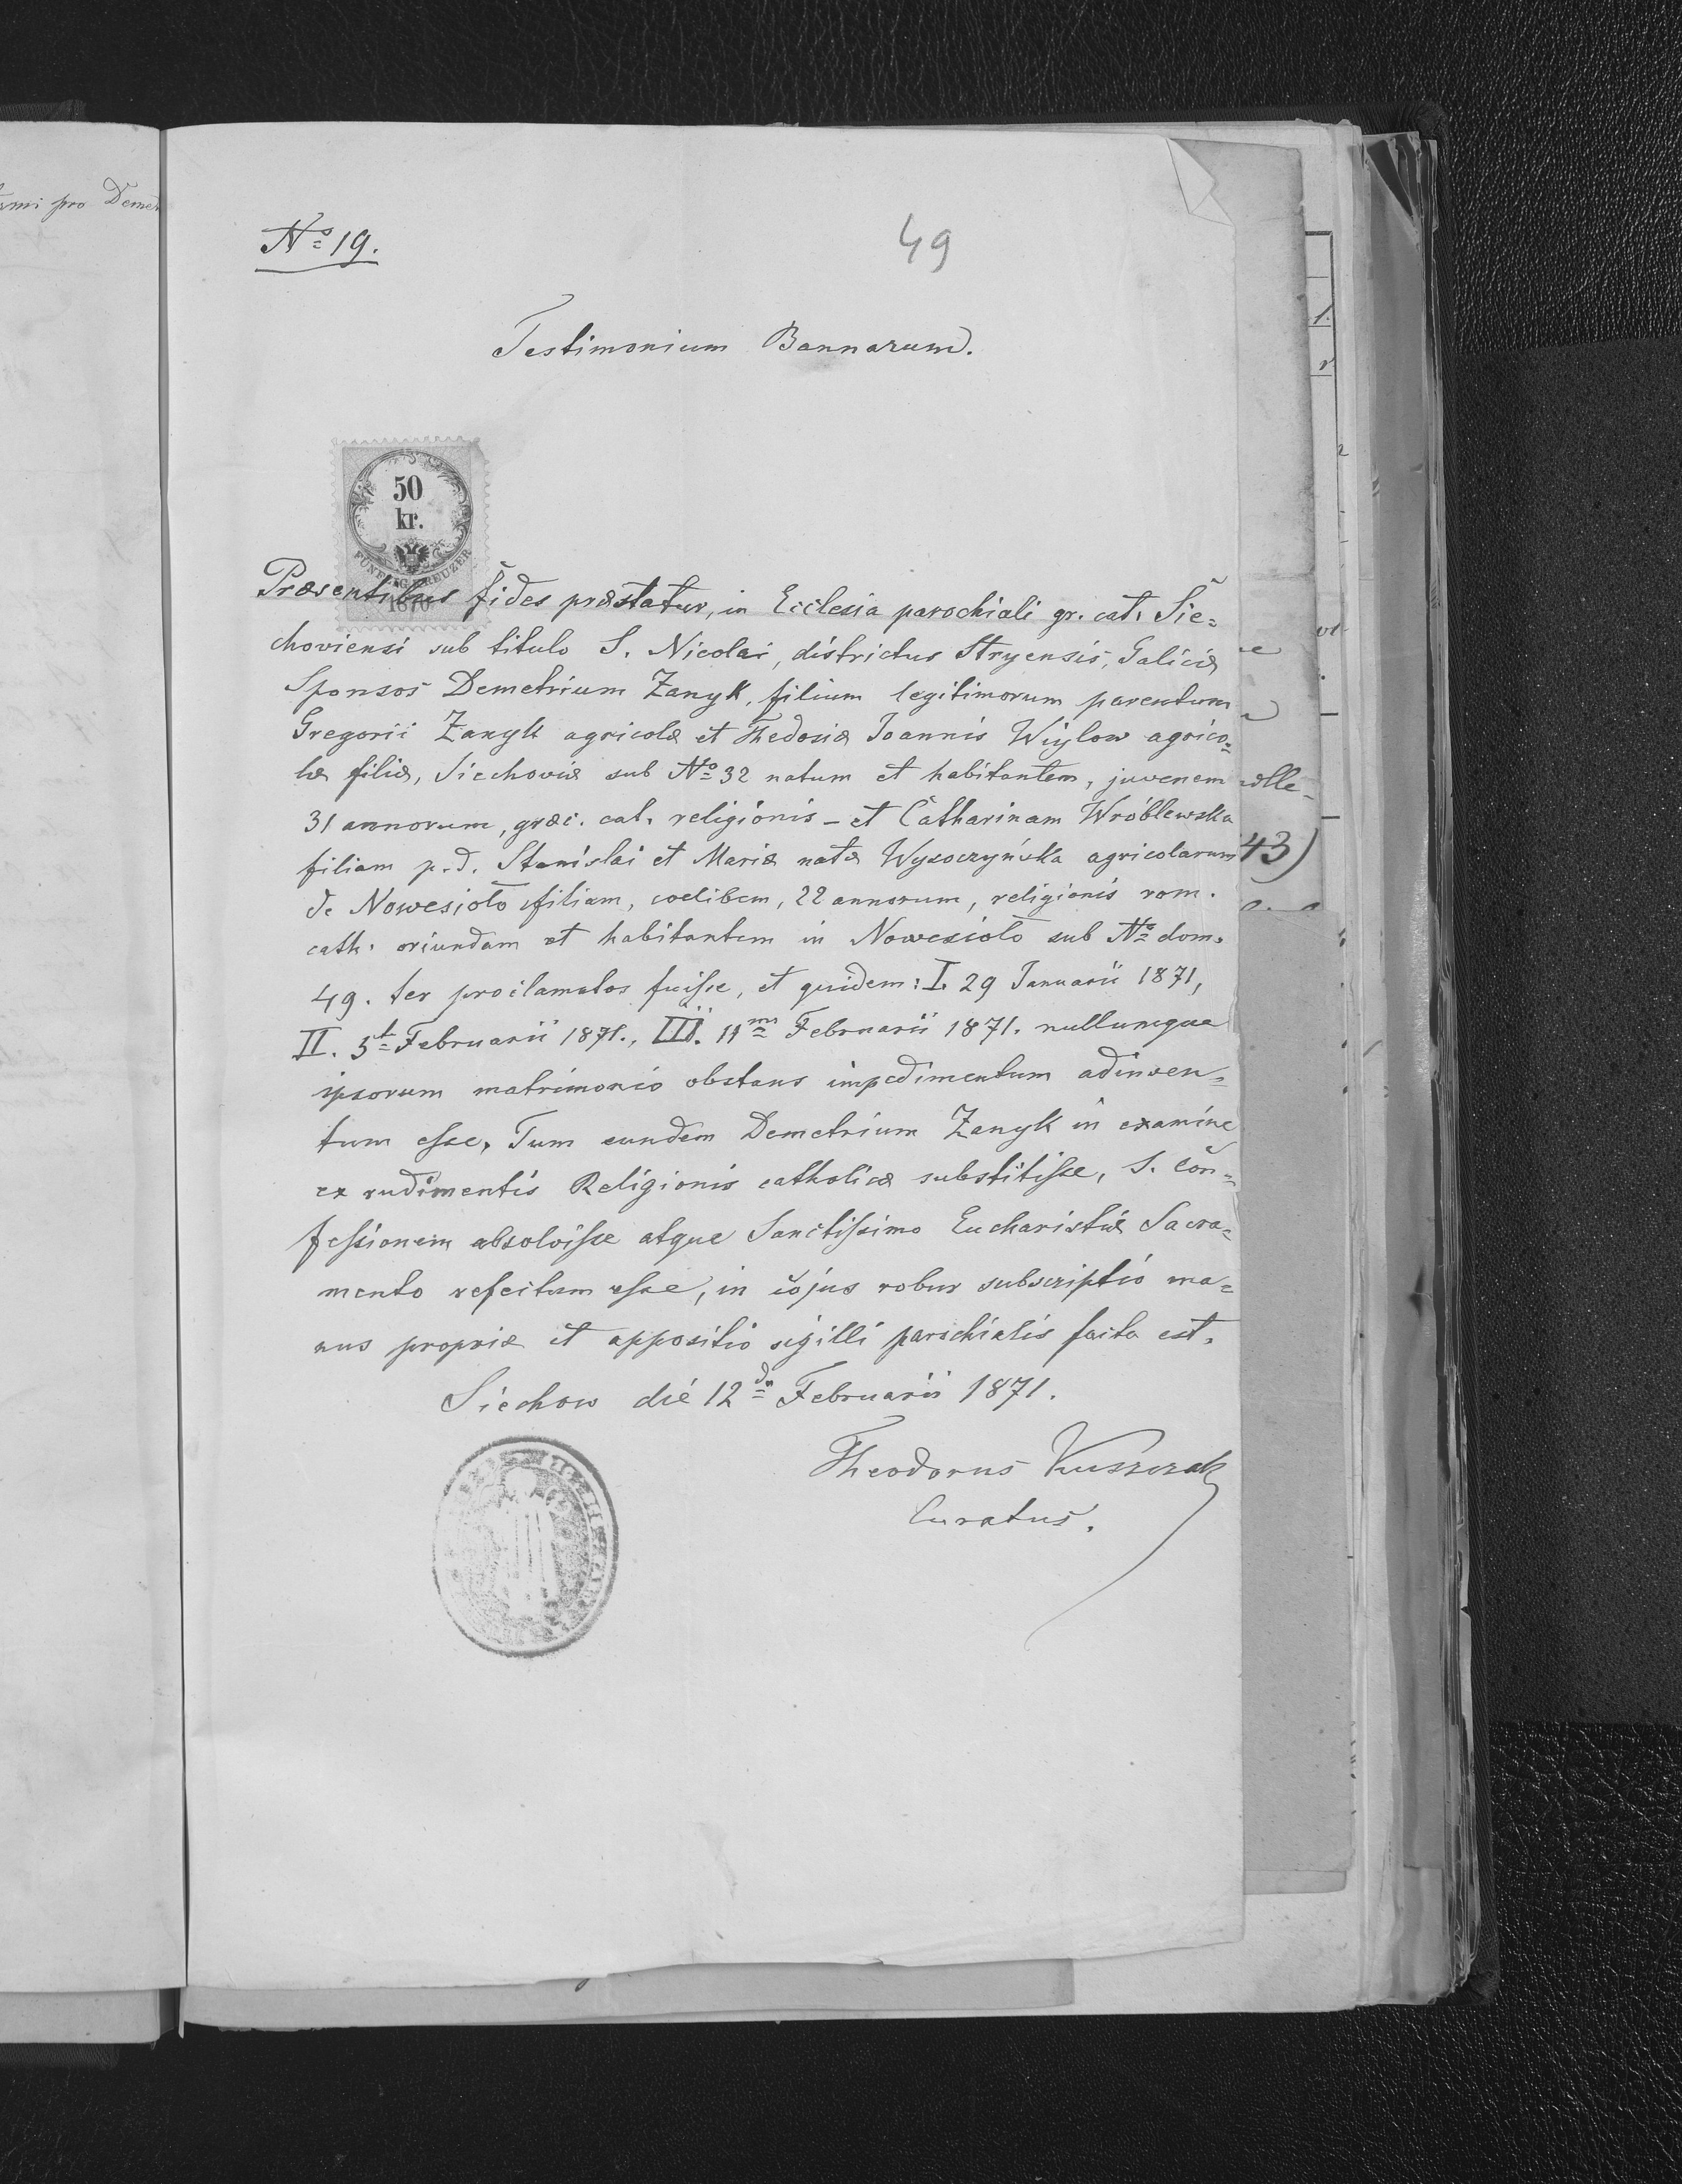 pro Demet
№ 19.
49
Testimonium Bannarum.
50
kr.
FÜNFZIG KREUZER
1870
Præsentibus fides præstatur, in Ecclesia parochiali gr. cat. Sie=
choviensi sub titulo S. Nicolai, districtus Stryensis, Galiciæ
Sponsos Demetrium Zanyk, filium legitimorum parentum
Gregorii Zanyk agricolæ et Thedosiæ Joannis Wiylow agrico=
læ filiæ, Siechoviæ sub № 32 natum et habitantem, juvenem
31 annorum, græc. cat. religionis – et Catharinam Wróblewska
filiam p. d. Stanislai et Mariæ natæ Wysoczyńska agricolarum
de Nowesioło filiam, coelibem, 22 annorum, religionis rom.
cath. oriundam et habitantem in Nowesioło sub № dom.
49. ter proclamatos fuisse, et quidem: I. 29 Januarii 1871,
II. 5t Februarii 1871., III. 11ma Februarii 1871. nullumque
ipsorum matrimonio obstans impedimentum adinven=
tum esse. Tum eundem Demetrium Zanyk in examine
ex rudimentis Religionis catholicæ substitisse, S. Con=
fessionem absolvisse atque Sanctissimo Eucharistiæ Sacra=
mento refectum esse, in cujus robur subscriptio ma=
nus propriæ et appositio sigilli parochialis facta est.
Siechow die 12da Februarii 1871.
Theodorus Kuszczak
Curatus.
43)